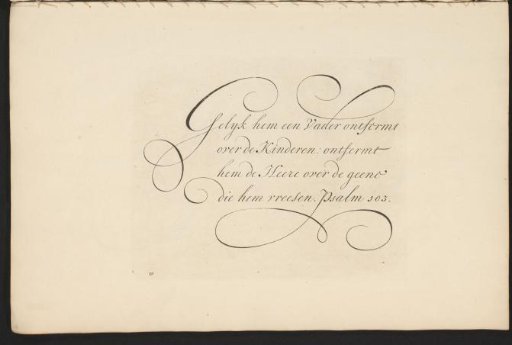 Gelyk hem een Vader ontfermt
over de Kinderen: ontfermt
hem de Heere over de geene
die hem vreesen. Psalm 103.